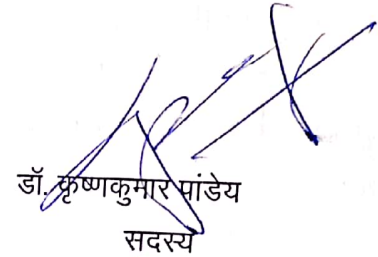 डॉ. कृष्णकुमार पांडेय
सदस्य